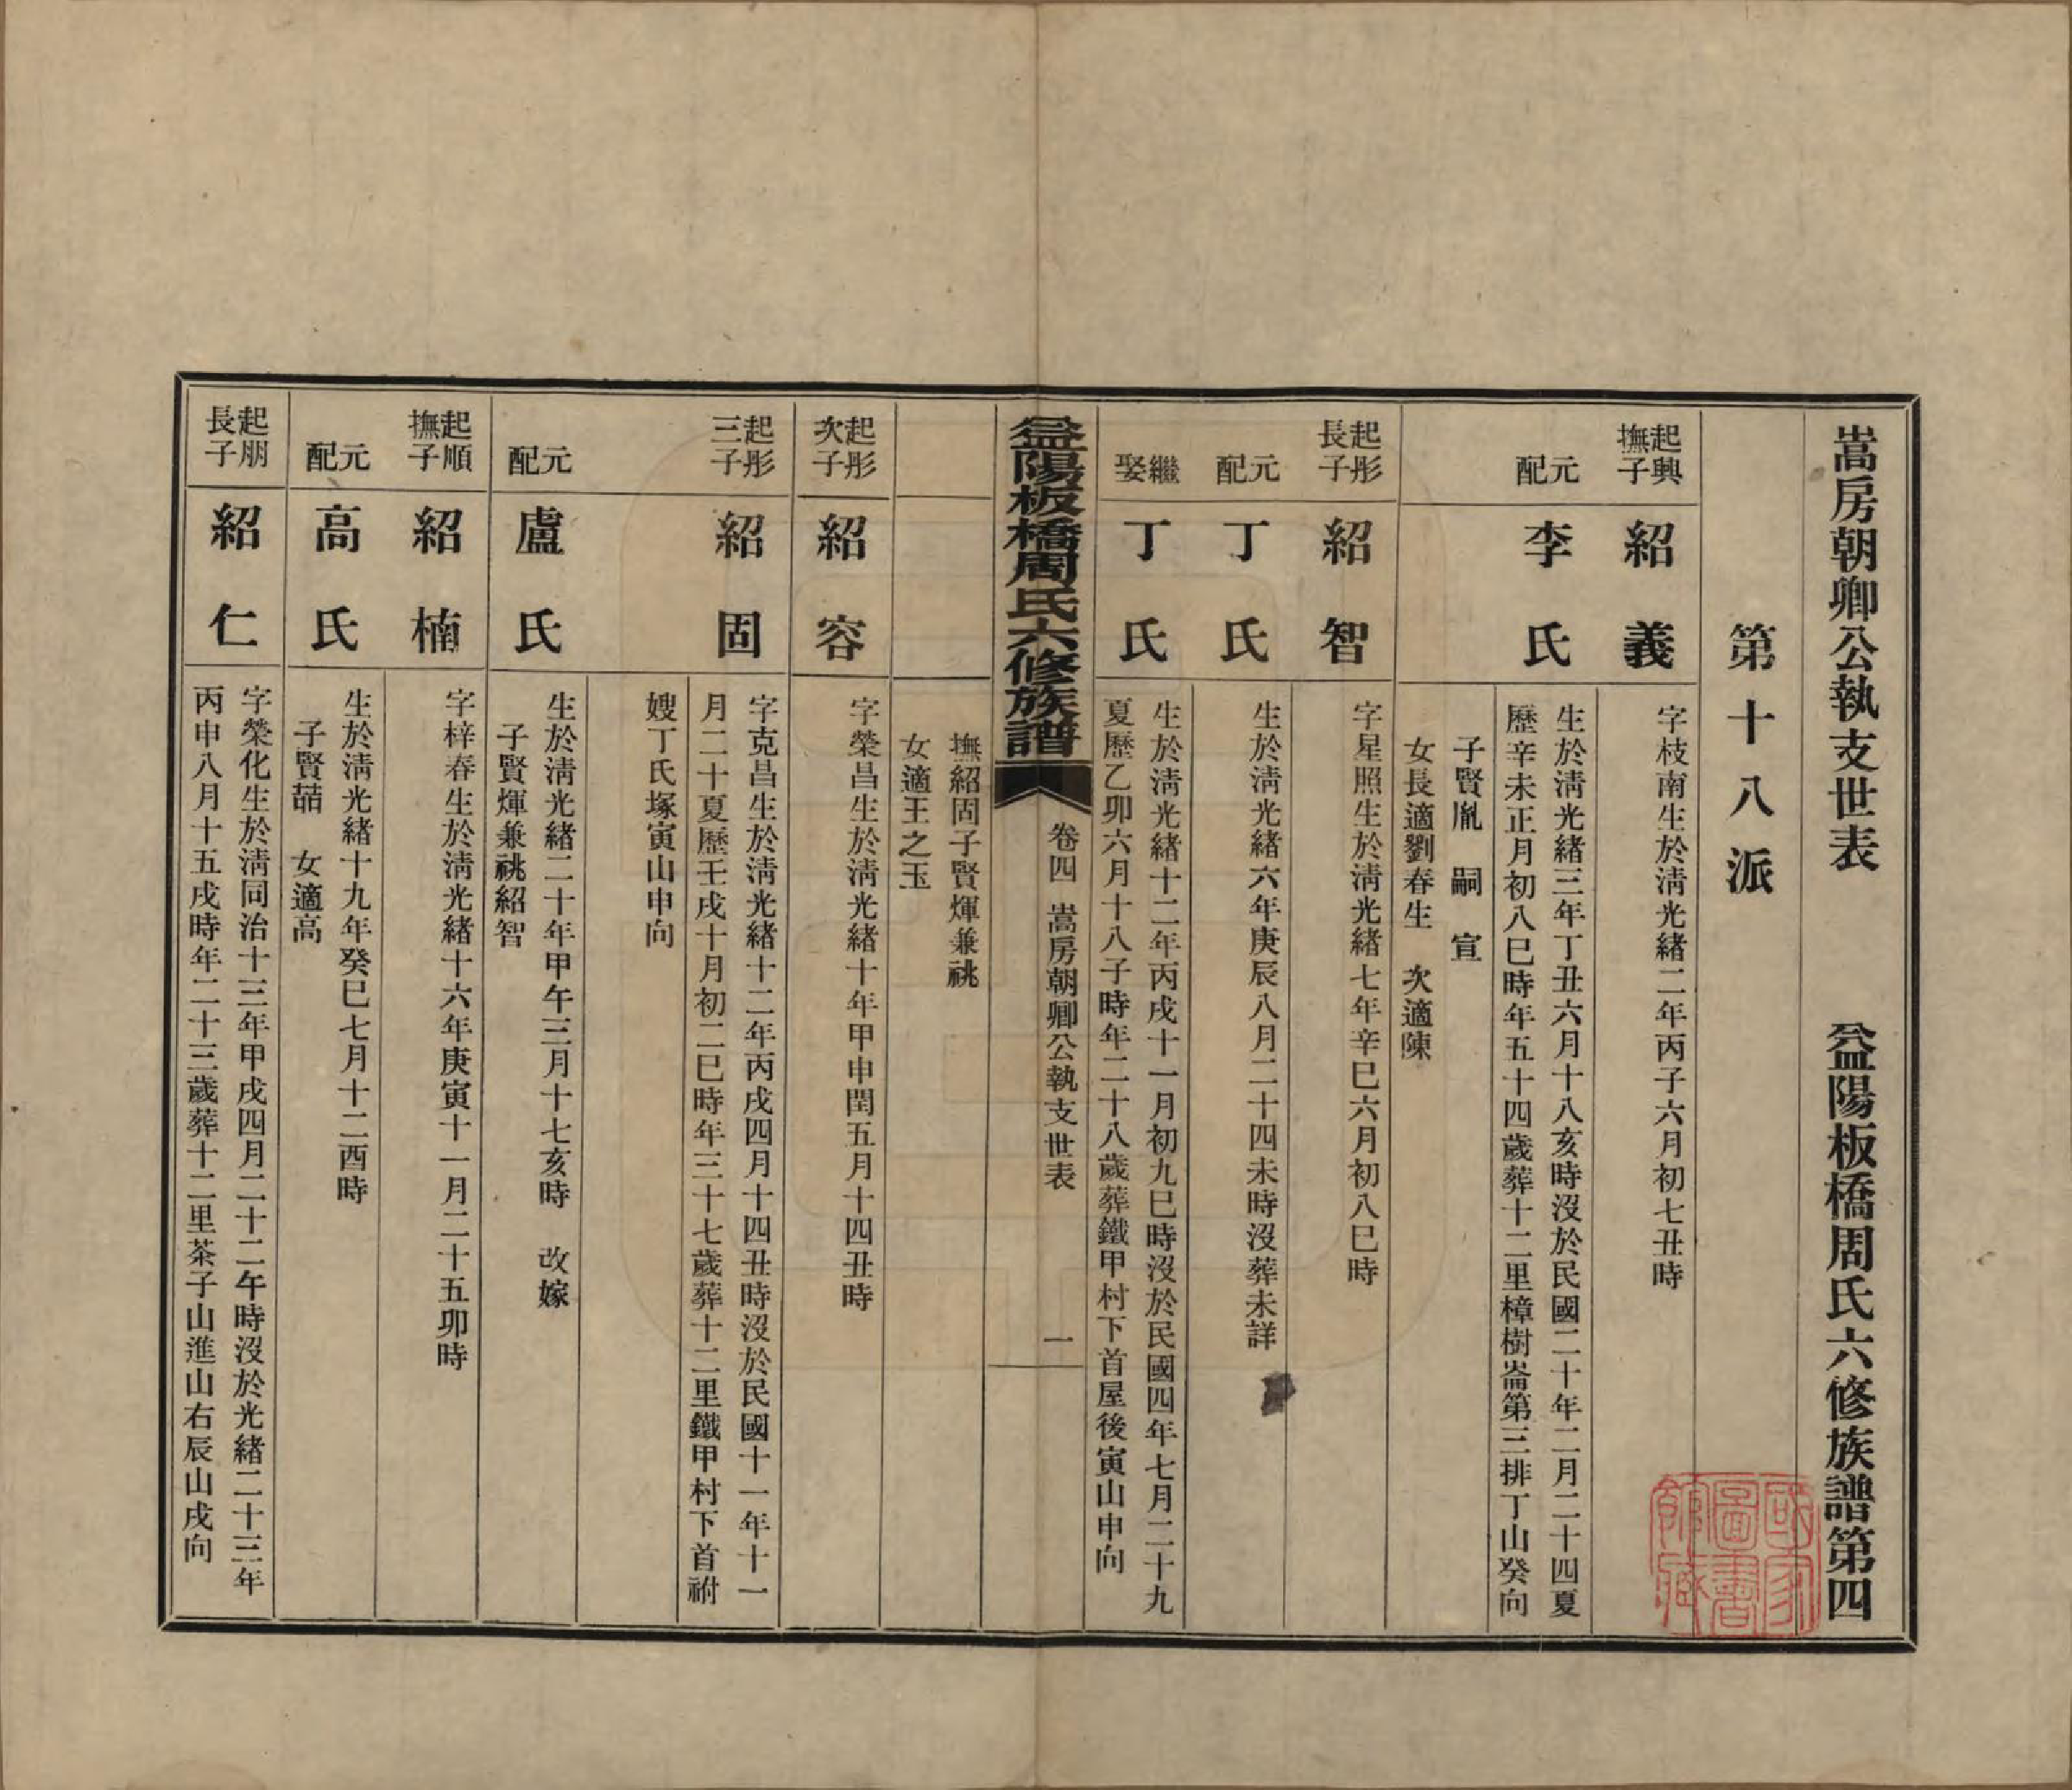 嵩房朝卿公執支世表　益陽板橋周氏六修族譜第四
第十八派
起興撫子　紹義　字枝南生於淸光緒二年丙子六月初七丑時
元配　李氏　生於淸光緒三年丁丑六月十八亥時沒於民國二十年二月二十四夏
歷辛未正月初八巳時年五十四歲葬十二里樟樹崙第三排丁山癸向
子賢胤　嗣　宣
女長適劉春生　次適陳
起彤長子　紹智　字星照生於淸光緒七年辛巳六月初八巳時
元配　丁氏　生於淸光緒六年庚辰八月二十四未時沒葬未詳
繼娶　丁氏　生於淸光緒十二年丙戌十一月初九巳時沒於民國四年七月二十九
夏歷乙卯六月十八子時年二十八歲葬鐵甲村下首屋後寅山申向
益陽板橋周氏六修族譜　卷四　嵩房朝卿公執支世表　一
撫紹固子賢煇兼祧
女適王之玉
起彤次子　紹容　字榮昌生於淸光緒十年甲申閏五月十四丑時
起彤三子　紹固　字克昌生於淸光緒十二年丙戌四月十四丑時沒於民國十一年十一
月二十夏歷壬戌十月初二巳時年三十七歲葬十二里鐵甲村下首祔
嫂丁氏塚寅山申向
元配　盧氏　生於淸光緒二十年甲午三月十七亥時　改嫁
子賢煇兼祧紹智
起順撫子　紹楠　字梓春生於淸光緒十六年庚寅十一月二十五卯時
元配　高氏　生於淸光緒十九年癸巳七月十二酉時
子賢喆　女適高
起朋長子　紹仁　字榮化生於淸同治十三年甲戌四月二十二午時沒於光緒二十三年
丙申八月十五戌時年二十三歲葬十二里茶子山進山右辰山戌向
國家圖書館藏